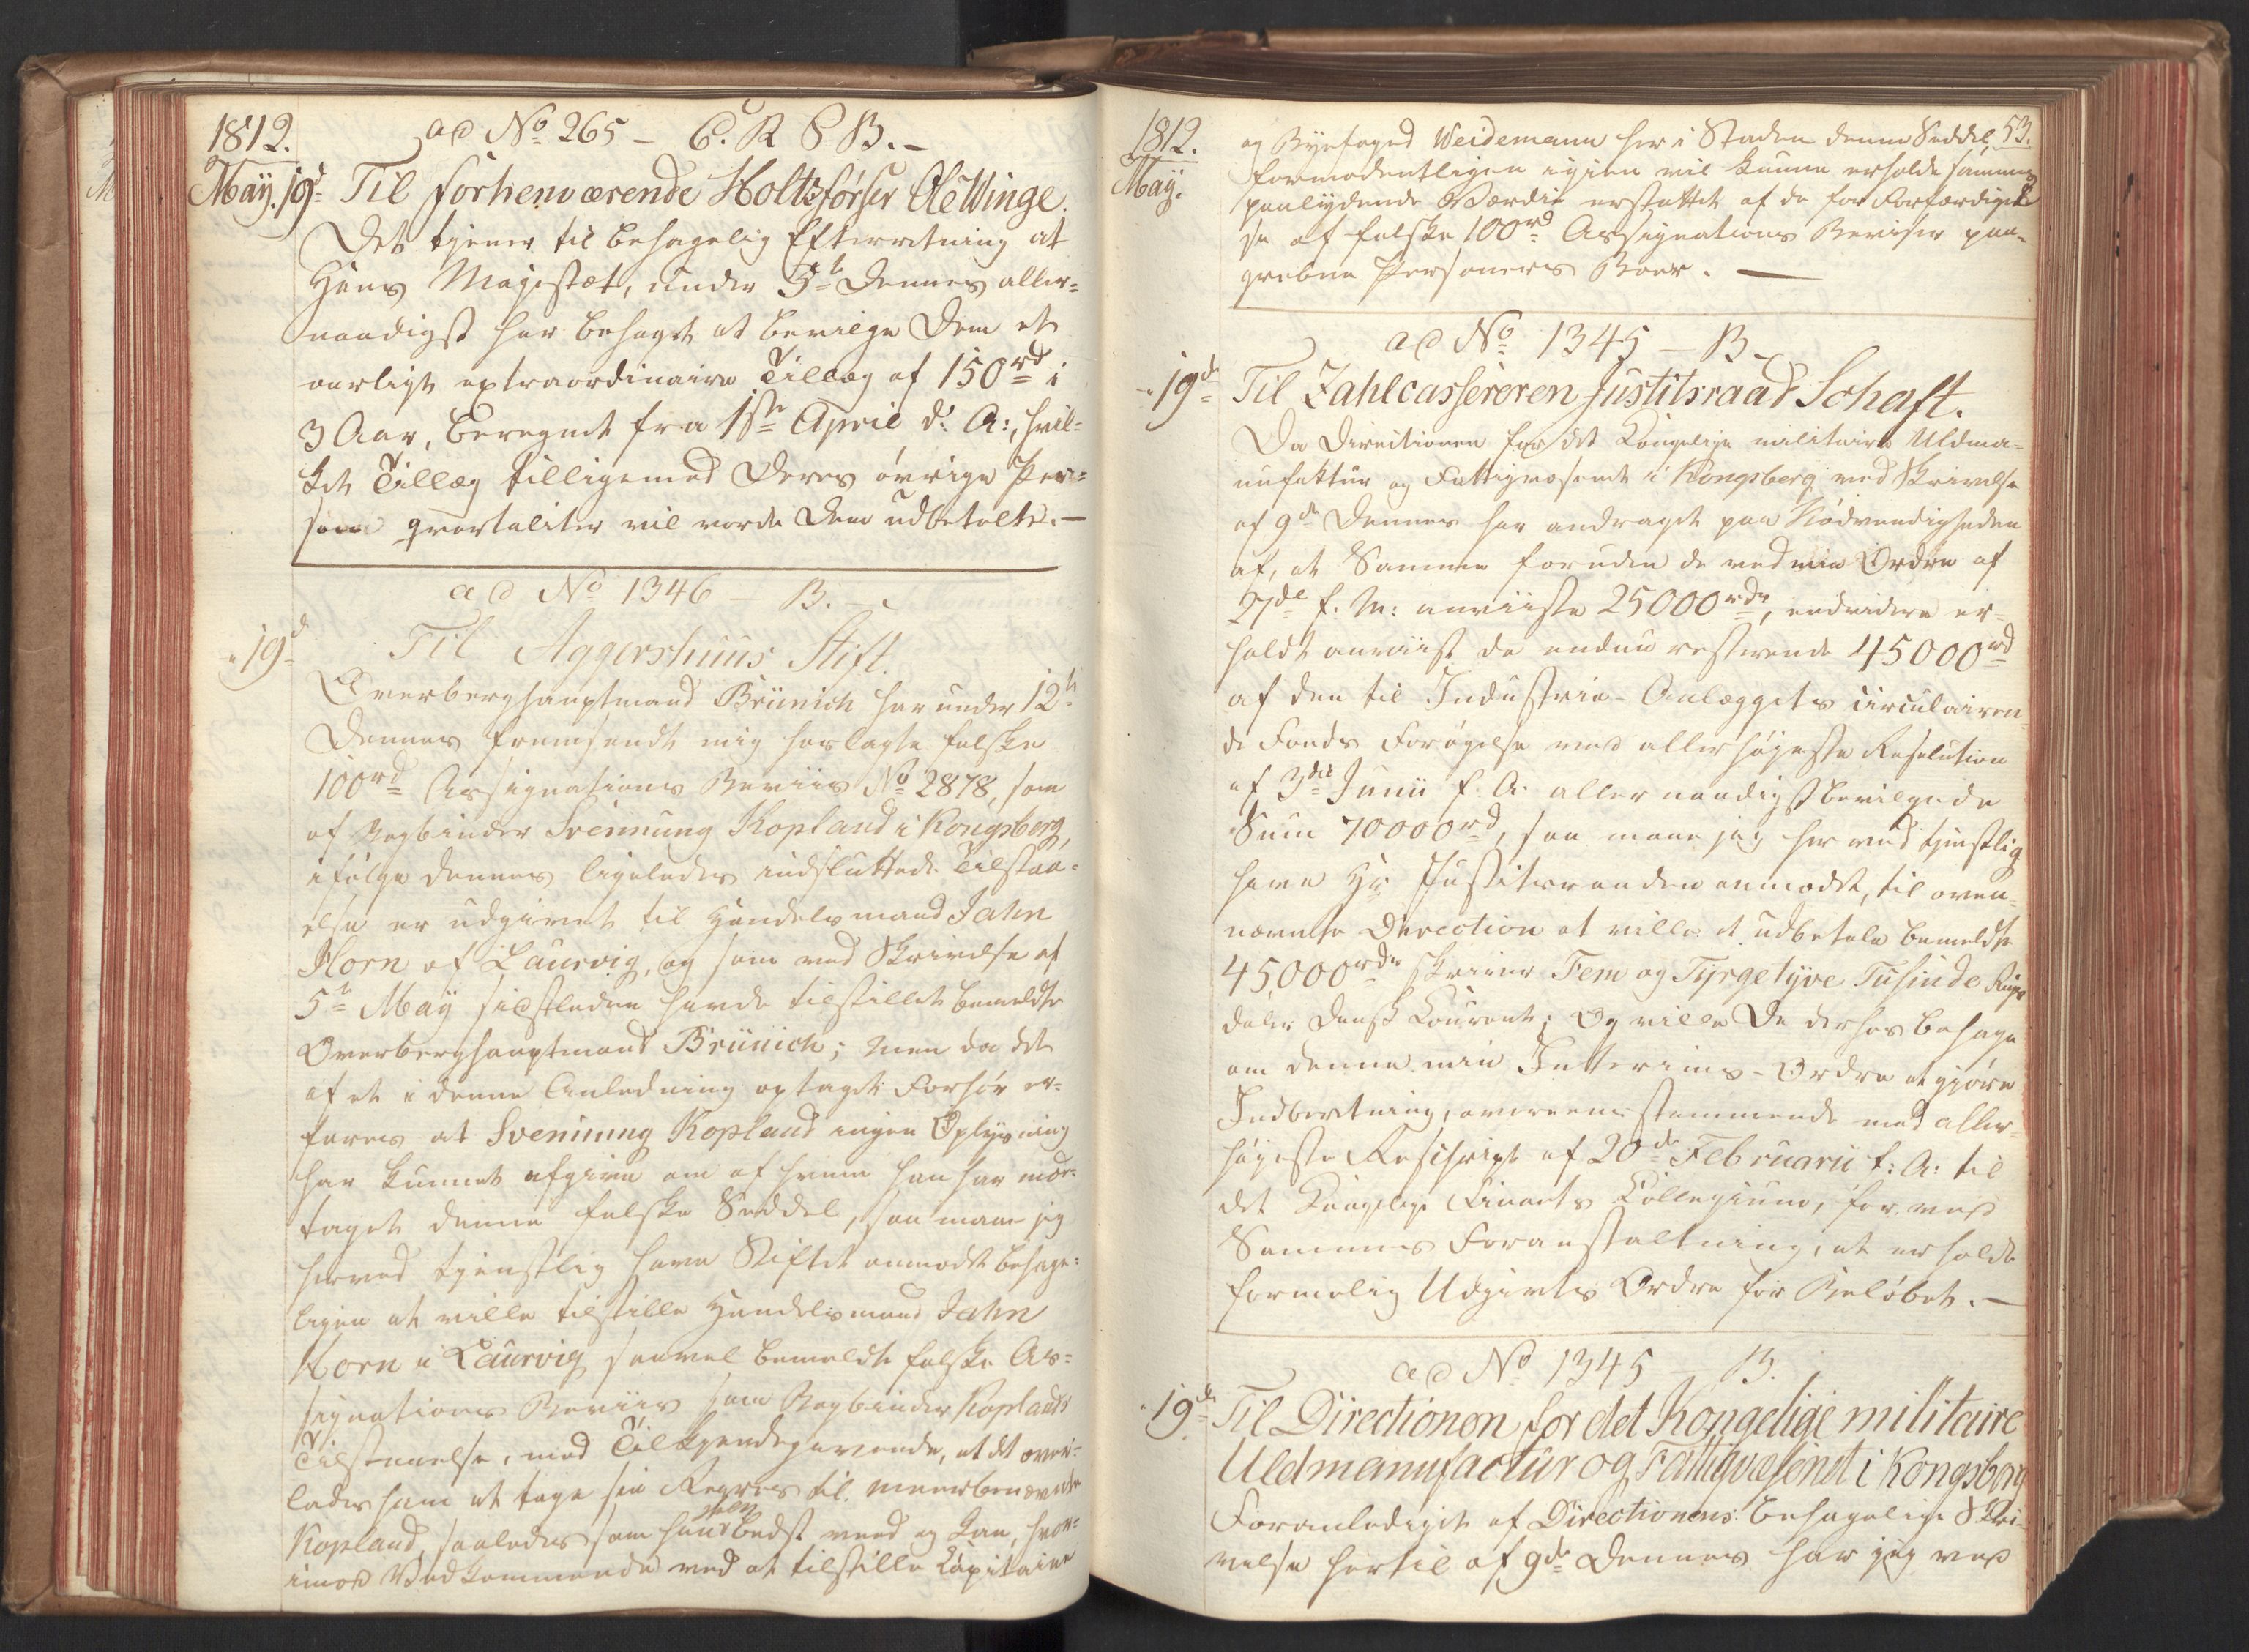 1812.
ad No 265 – C. R. S. B. –
May. 19d. Til forhenværende Holtzførster Ole Winge.
Det tjener til behagelig Efterretning at
Hans Majestæt, under 5te Dennes aller-
naadigst har behaget at bevilge Dem et
aarligt extraordinaire Tillæg af 150rd i
3 Aar, beregnet fra 1ste April d: A:, hvil-
ket Tillæg tilligemed Deres øvrige Pen-
sion qvartaliter vil vorde Dem udbetalt. –
ad No 1346 – B. –
" 19d Til Aggershuus Stift.
Overberghauptmand Brünich har under 12te
Dennes fremsendt mig hoslagte falske
100rd Assignations Beviis No 2878, som
af Bogbinder Svennung Kopland i Kongsberg,
ifølge dennes ligeledes indsluttede Tilstaa-
else er udgivet til Handelsmand Jahn
Horn af Laurvig, og som med Skrivelse af
5te May sidstleden havde tilstillet bemeldte
Overberghauptmand Brünich; men da det
af et i denne Anledning optaget Forhør er-
fares at Svennung Kopland ingen Oplysning
har kunnet afgive om af hvem han har mod-
taget denne falske Seddel, saa maae jeg
herved tjenstlig have Stiftet anmodet behage-
ligen at ville tilstille Handelsmand Jahn
Horn i Laurvig saavel bemeldte falske As-
signations Beviis som Bogbinder Koplands
Tilstaaelse, med Tilkjendegivende, at det over-
lades ham at tage sin Regres til meerbenævnte
Kopland, saaledes som han selv bedst veed og kan, hvor-
imod Vedkommende ved at tilstille Capitaine
1812.
May.
53.
og Byefoged Weidemann her i Staden denne Seddel,
formodentligen igien vil kunne erholde sammes
paalydende Værdie erstattet af de for Forfærdigel-
se af falske 100rd Assignations Beviser paa-
grebne Personers Boer. –
ad No 1345 – B –
" 19de Til Zahlcassereren Justitsraad Schaft.
Da Directionen for det Kongelige militaire Uldma-
nufaktur og Fattigvæsenet i Kongsberg med Skrivelse
af 9de Dennes har andraget paa Nødvendigheden
af, at Samme foruden de ved min Ordre af
27de f. M: anviiste 25000rdr, endvidere er-
holdt anviist de endnu resterende 45000rd
af den til Industrie-Anlæggets circulairen-
de Fonds Forøgelse med allerhøjeste Resolution
af 3die Junii f. A. allernaadigst bevilgede
Sum 70000rd, saa maae jeg herved tjenstlig
have Hr Justitsraaden anmodet, til oven-
nævnte Direction at ville udbetale bemeldte
45,000rdr skriver Fem og Fyrgetyve Tusinde Rigs
daler Dansk Courant; Og ville De derhos behage
om denne min Interims-Ordre at gjøre
Indberetning, overeensstemmende med aller-
højeste Rescript af 20de Februarii f: A: til
det Kongelige Finants Collegium, for ved
Sammes Foranstaltning, at erholde
formelig Udgivts Ordre for Beløbet. –
ad No 1345 – B.
" 19de Til Directionen for det Kongelige militaire
Uldmanufactur og Fattigvæsenet i Kongsberg
Foranlediget af Directionens behagelige Skri-
velse hertil af 9de Dennes har jeg ved